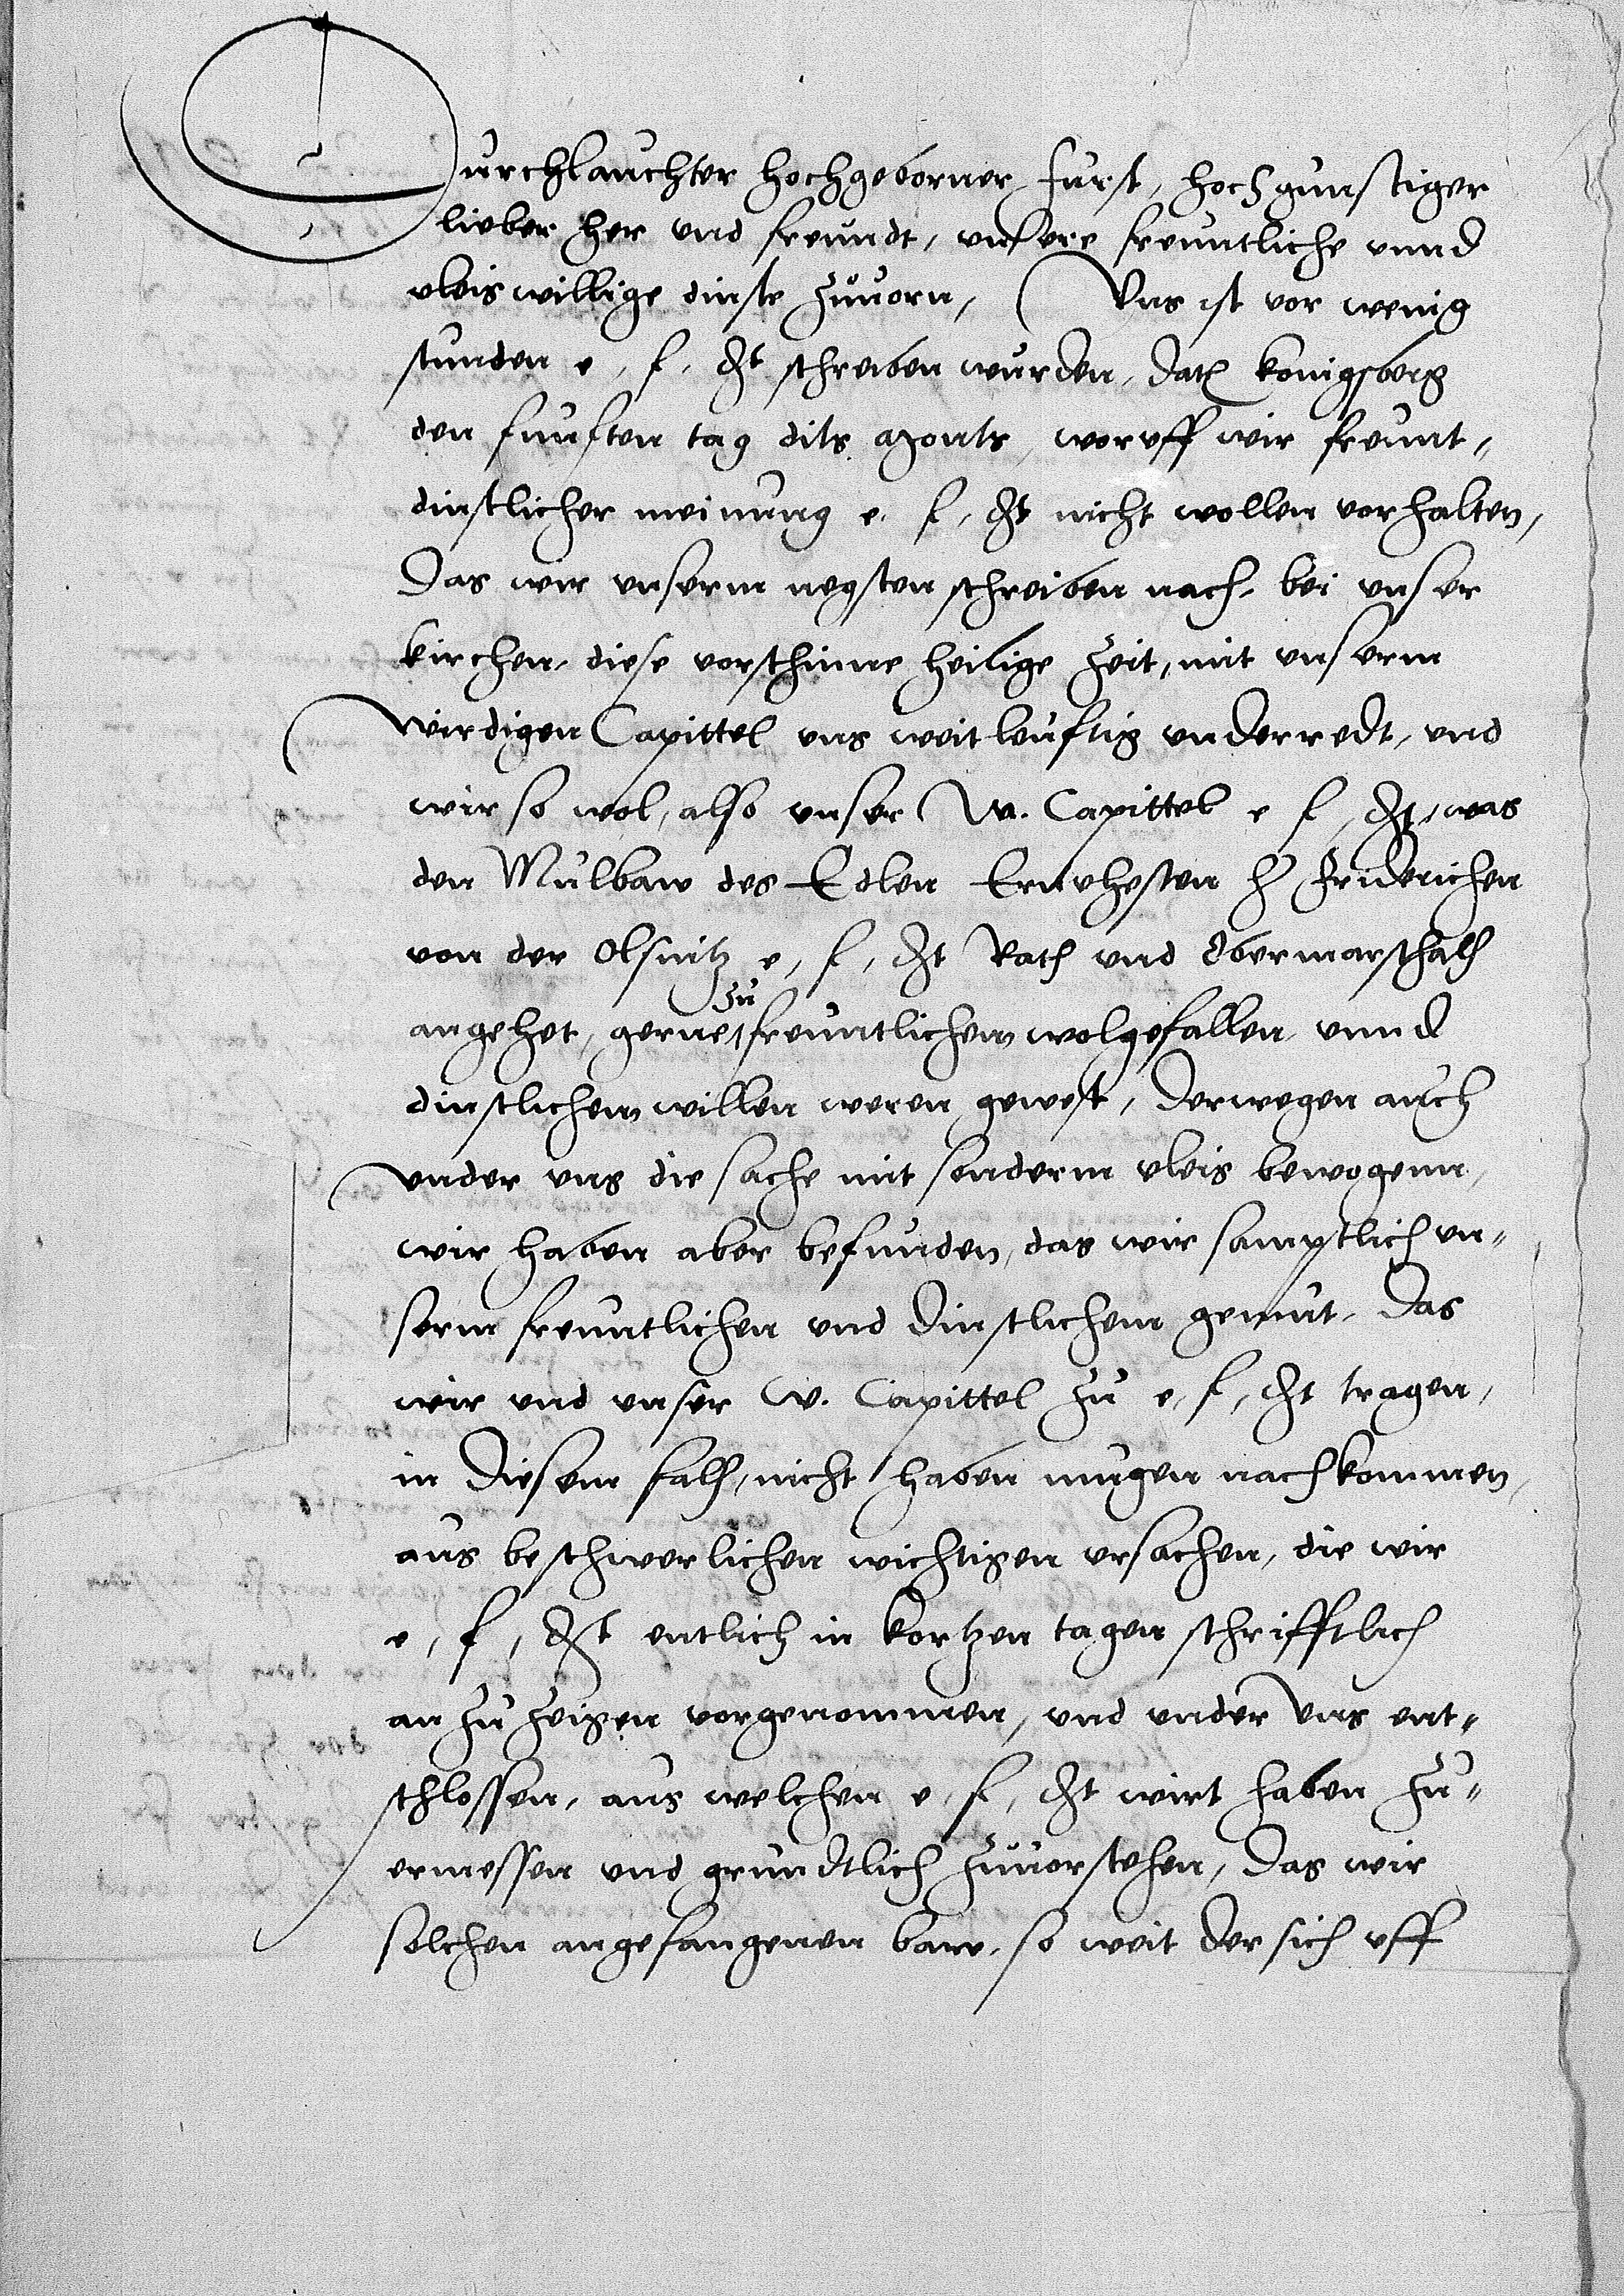 Durchlauchter hochgeborner furst, hochgunstiger
lieber her und freundt, unsere freuntliche unnd
vleiswillige dinste zuuorn, Uns ist vor wenig
stunden e, f, dt schreiben wurden, dat Konigsberg
den funften tag dits monts, woruff wir freunt-
dinstlicher meinung e, f, dt nicht wollen vorhalten,
Das wir unserm negsten schreiben nach, bei unser
kirchen, diese vorschinne heilige zeit, mit unserm
wirdigen Capittel uns weitleuftig underredt, und
wir so wol, also unser W. Capittel e f, dt, was
den Mulbaw des Edlen Ernvhesten h Friderichen
von der Olsnitz e, f, dt Rath und Obermarschalh
angehet, gerne zu freuntlichem wolgefallen unnd
dinstlichem willen weren gewest, derwegen auch
under uns die sache mit sonderm vleis bewogenn,
wir haben aber befunden, das wir samptlich un-
serm freuntlichen und dinstlichem gemut, das
wir und unser W. Capittel zu e, f, dt tragen,
in diesem falh, nicht haben mugen nachkommen,
aus beschwerlichen wichtigen ursachen, die wir
e, f, dt entlich in kortzen tagen schrifftlich
anzuzeigen vorgenommen, und under uns ent-
schlossen, aus welchen e, f, dt wirt haben zu-
ermessen und grundtlich zuuorstehen, das wir
solchen angefangenen baw, so weit der sich uff